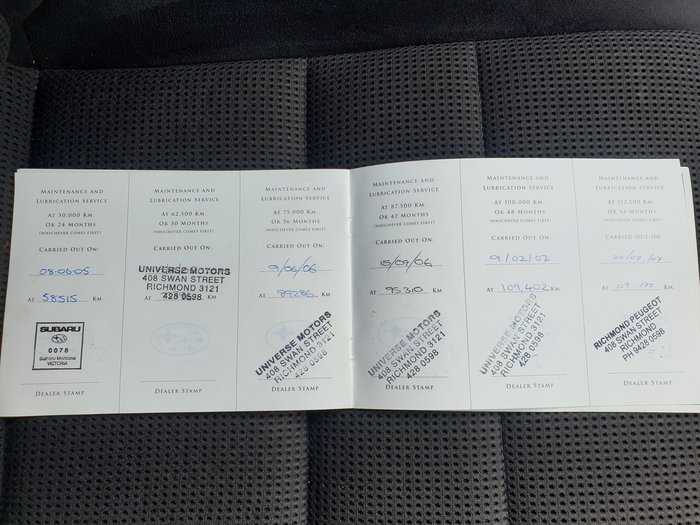 MAINTENANCE AND
LUBRICATION SERVICE
AT 50,000 KM.
OR 24 MONTHS
(WHICHEVER COMES FIRST)
CARRIED OUT ON:
08-06-05
AT 58515 KM
SUBARU
0078
VICTORIA
DEALER STAMP
MAINTENANCE AND
LUBRICATION SERVICE
AT 62,500 KM.
OR 30 MONTHS
(WHICHEVER COMES FIRST)
CARRIED OUT ON:
UNIVERSE MOTORS
408 SWAN STREET
RICHMOND 3121
428 0598
AT KM
DEALER STAMP
MAINTENANCE AND
LUBRICATION SERVICE
AT 75,000 KM.
OR 36 MONTHS
(WHICHEVER COMES FIRST)
CARRIED OUT ON:
9/06/06
AT 89286. KM
UNIVERSE MOTORS
408 SWAN STREET
RICHMOND 3121
428 0598
DEALER STAMP
MAINTENANCE AND
LUBRICATION SERVICE
AT 87,500 KM.
OR 42 MONTHS
(WHICHEVER COMES FIRST)
CARRIED OUT ON:
15/09/06
AT 95310 KM
UNIVERSE MOTORS
408 SWAN STREET
RICHMOND 3121
428 0598
DEALER STAMP
MAINTENANCE AND
LUBRICATION SERVICE
AT 100,000 KM.
OR 48 MONTHS
(WHICHEVER COMES FIRST)
CARRIED OUT ON:
9/02/07
AT 109,402 KM
UNIVERSE MOTORS
408 SWAN STREET
RICHMOND 3121
428 0598
DEALER STAMP
MAINTENANCE AND
LUBRICATION SERVICE
AT 112,500 KM.
OR 54 MONTHS
(WHICHEVER COMES FIRST)
CARRIED OUT ON:
AT KM
RICHMOND PEUGEOT
408 SWAN STREET
RICHMOND
PH 9428 0598
DEALER STAMP